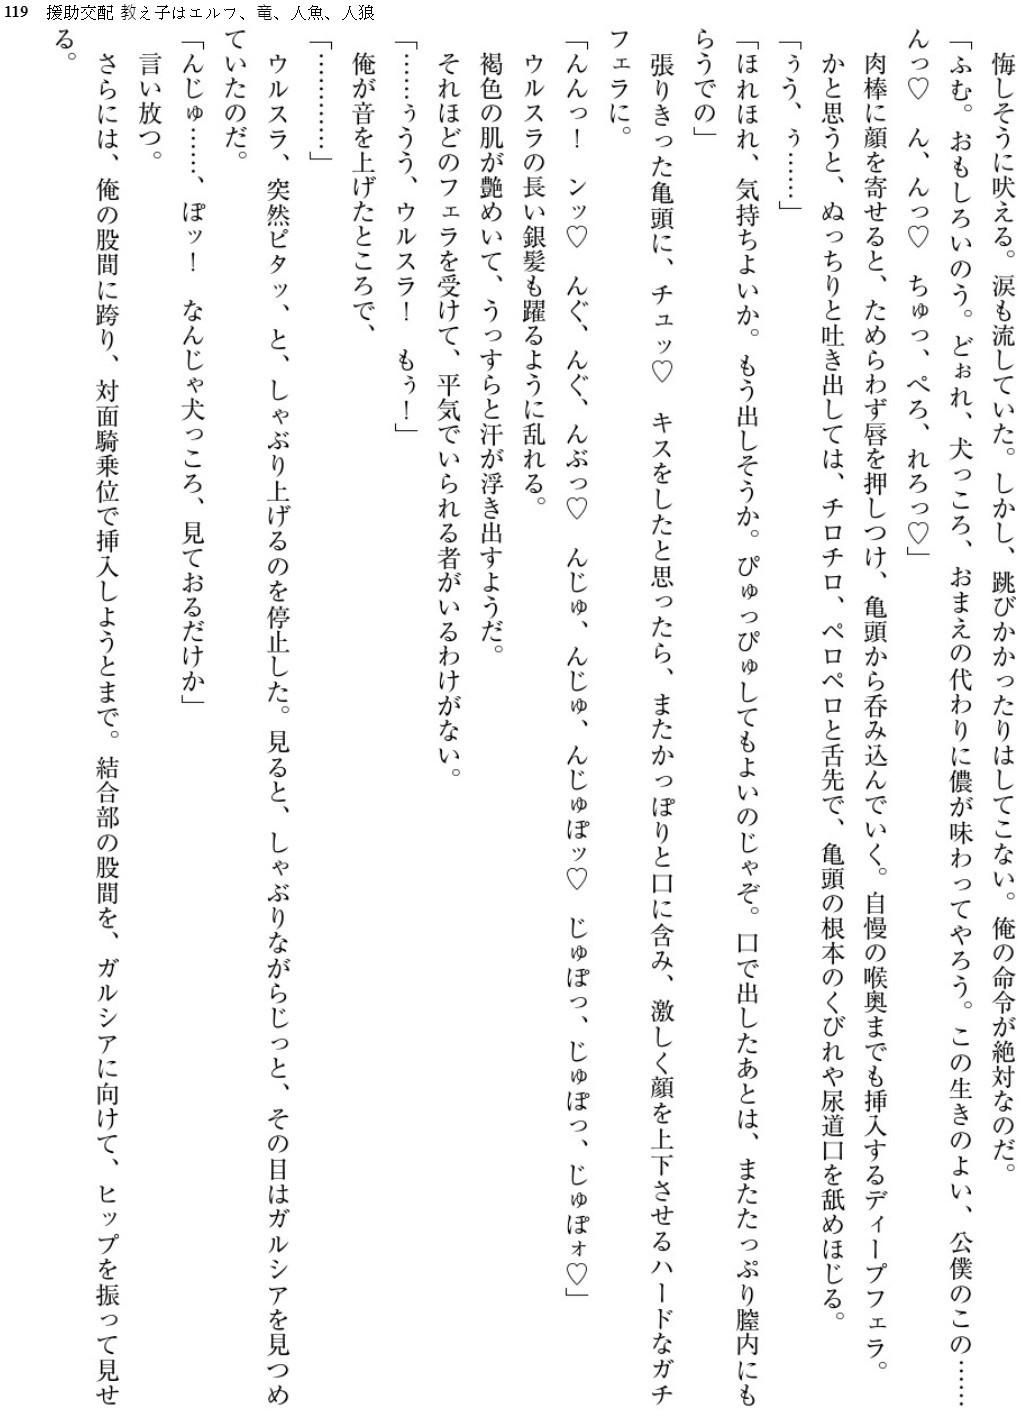 119 援助交配 教え子はエルフ、竜、人魚、人狼
悔しそうに吠える。涙も流していた。しかし、跳びかかったりはしてこない。俺の命令が絶対なのだ。
「ふむ。おもしろいのう。どぉれ、犬っころ、おまえの代わりに儂が味わってやろう。この生きのよい、公僕のこの……
んっ♡　ん、んっ♡　ちゅっ、ぺろ、れろっ♡」
肉棒に顔を寄せると、ためらわず唇を押しつけ、亀頭から呑み込んでいく。自慢の喉奥までも挿入するディープフェラ。
かと思うと、ぬっちりと吐き出しては、チロチロ、ペロペロと舌先で、亀頭の根本のくびれや尿道口を舐めほじる。
「ぅう、ぅ……」
「ほれほれ、気持ちよいか。もう出しそうか。ぴゅっぴゅしてもよいのじゃぞ。口で出したあとは、またたっぷり膣内にも
らうでの」
張りきった亀頭に、チュッ♡　キスをしたと思ったら、またかっぽりと口に含み、激しく顔を上下させるハードなガチ
フェラに。
「んんっ！　ンッ♡　んぐ、んぐ、んぶっ♡　んじゅ、んじゅ、んじゅぽッ♡　じゅぽっ、じゅぽっ、じゅぽォ♡」
ウルスラの長い銀髪も躍るように乱れる。
褐色の肌が艶めいて、うっすらと汗が浮き出すようだ。
それほどのフェラを受けて、平気でいられる者がいるわけがない。
「……ぅうう、ウルスラ！　もぅ！」
俺が音を上げたところで、
「…………」
ウルスラ、突然ピタッ、と、しゃぶり上げるのを停止した。見ると、しゃぶりながらじっと、その目はガルシアを見つめ
ていたのだ。
「んじゅ……、ぽッ！　なんじゃ犬っころ、見ておるだけか」
言い放つ。
さらには、俺の股間に跨り、対面騎乗位で挿入しようとまで。結合部の股間を、ガルシアに向けて、ヒップを振って見せ
る。